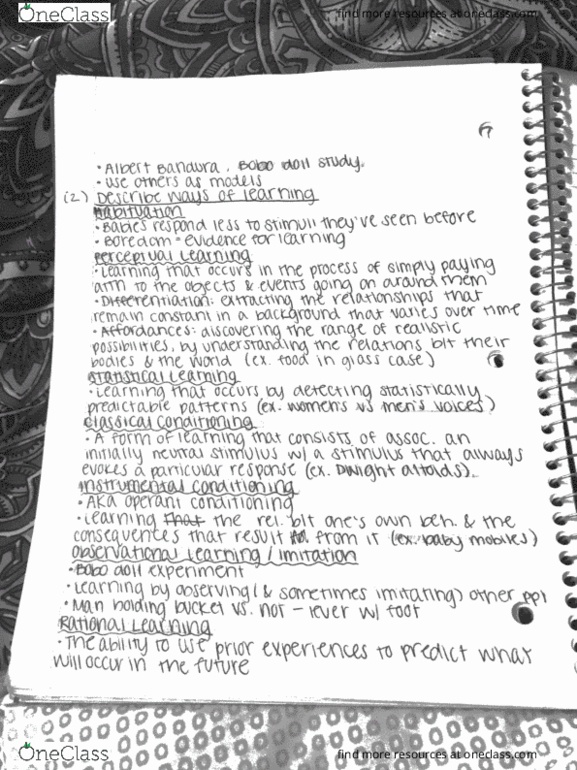 OneClass
find more resources at oneclass.com
• Albert Bandura, Bobo doll study.
• Use others as models
(2) Describe ways of learning
Habituation
• Babies respond less to stimuli they've seen before
• Boredom = evidence for learning
Perceptual Learning
• Learning that occurs in the process of simply paying
attn to the objects & events going on around them
• Differentiation: extracting the relationships that
remain constant in a background that varies over time
• Affordances: discovering the range of realistic
possibilities, by understanding the relations b/t their
bodies & the world (ex. food in glass case)
Statistical Learning
• Learning that occurs by detecting statistically
predictable patterns (ex. women's vs men's voices)
Classical Conditioning
• A form of learning that consists of assoc. an
initially neutral stimulus w/ a stimulus that always
evokes a particular response (ex. Dwight altoids).
Instrumental Conditioning
• AKA operant conditioning
• Learning that the rel. b/t one's own beh. & the
consequences that result from it (ex. baby mobiles)
Observational Learning / Imitation
• Bobo doll experiment
• Learning by observing (& sometimes imitating) other ppl
• Man holding bucket vs. not – lever w/ foot
Rational Learning
• The ability to use prior experiences to predict what
will occur in the future
OneClass
find more resources at oneclass.com